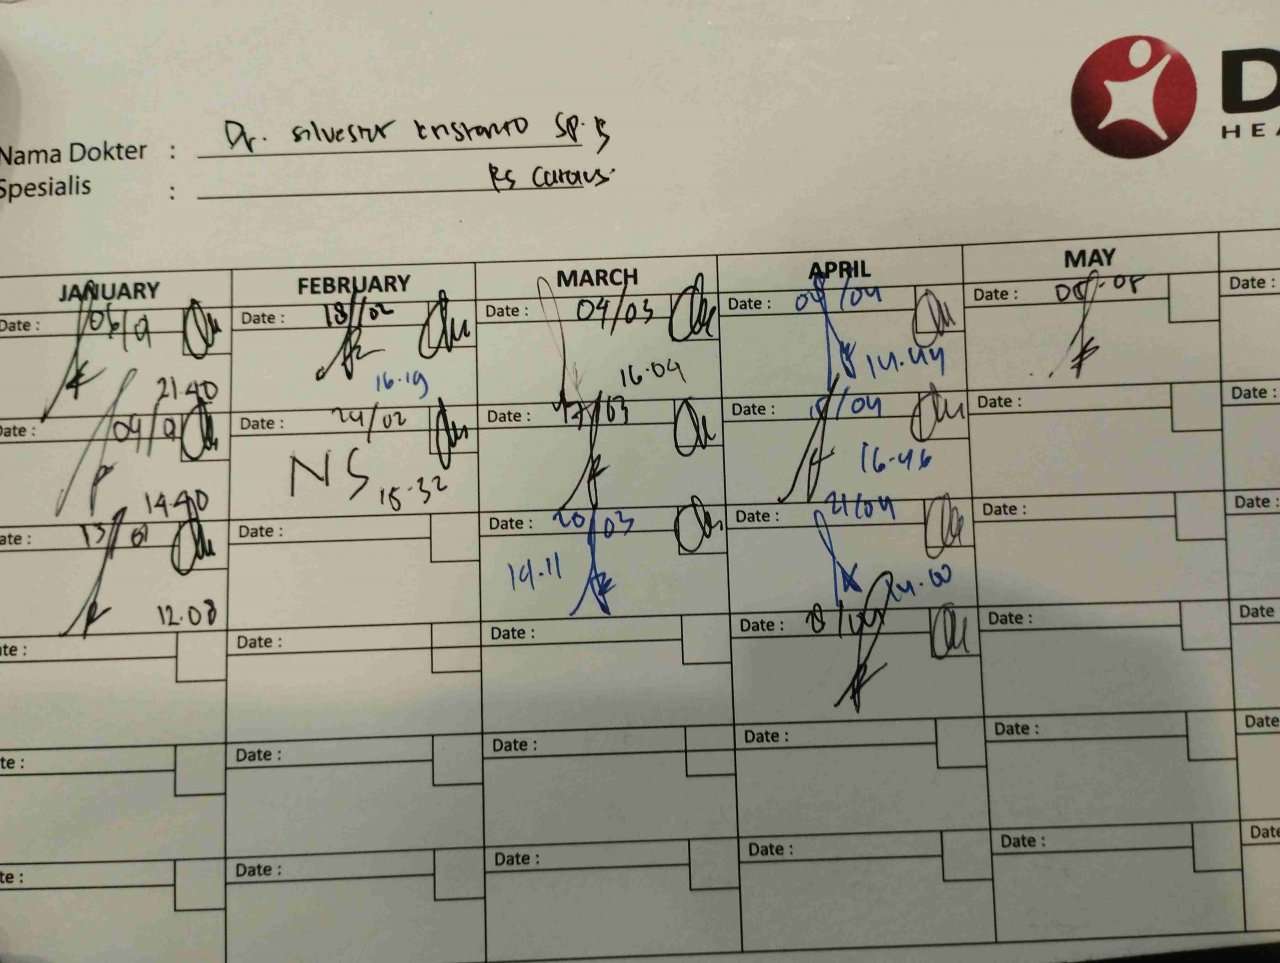 D
HEA
Nama Dokter :
Dr. Silvester Kristanto Sp.B
Spesialis :
RS Carolus.
JANUARY FEBRUARY MARCH APRIL MAY
Date : Date : 18/02 Date : 04/03 Date : 04/04 Date : 05.05 Date :
21.40 16.19 16.04 14.44
Date : Date : 24/02 Date : 17/03 Date : /04 Date : Date :
14.40 NS 15.32 16.46
ate : 13/01 Date : Date : 20/03 Date : 21/04 Date : Date
12.08 14.11 14.00
te : Date : Date : Date : /04 Date : Date
te : Date : Date : Date : Date : Date
te : Date : Date : Date : Date : Date